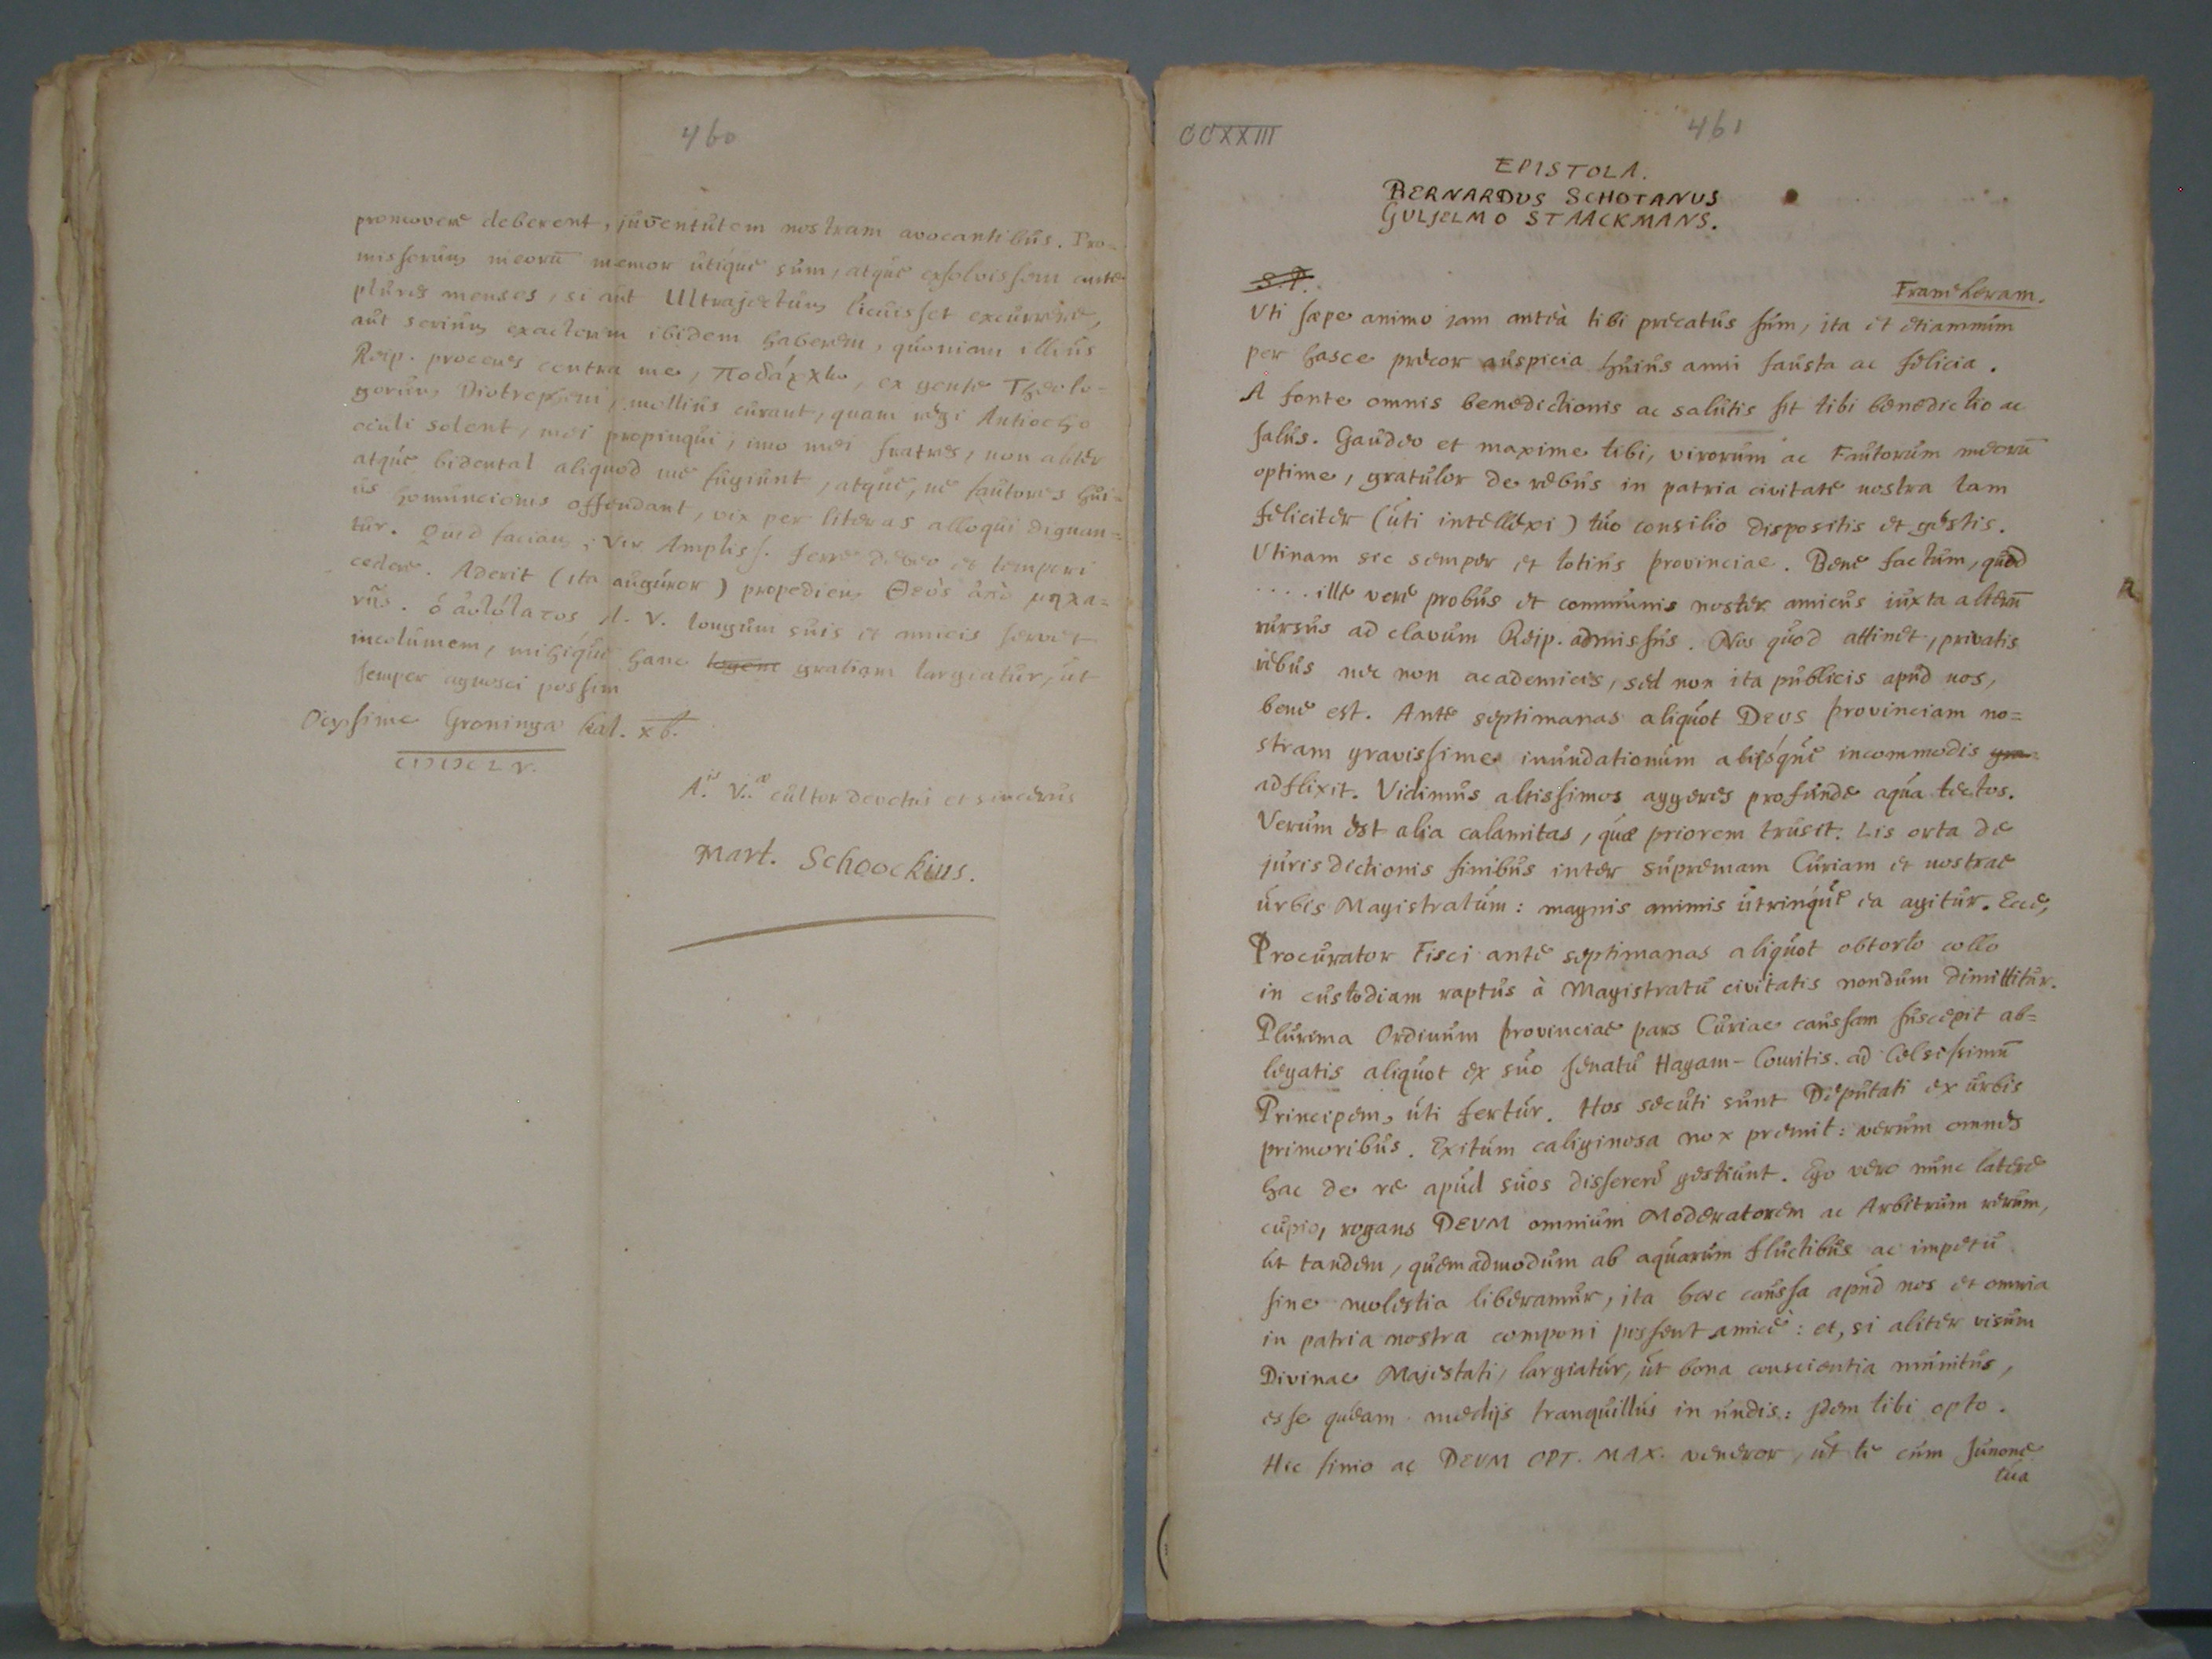 460
promovere deberent, juventutem nostram avocantibus. Pro=
missorum meorū memor utique sum, atque exsolvissem ante
plures menses, si aut Ultrajectum licuisset excurrere,
aut serium exactorem ibidem haberem, quoniam illius
Reip. proceres contra me, ex gente Theolo=
gorum Diotrephem, mollius curant, quam regi Antiocho
oculi solent, mei propinqui, imo mei fratres, non aliter
atque bidental aliquod me fugiunt, atque, ne fautores hui=
us homuncionis offendant, vix per literas alloqui dignan=
tur. Quid faciam, Vir Ampliss. ferre debeo et tempori
cedere. Aderit (ita auguror) propediem Θεὸς ἀπὸ μηχα=
A. V. longum suis et amicis servet
incolumem, mihique hanc gratiam largiatur, ut
semper agnosci possim
Ocyssime Groninga kal. xb.
A.is V.æ cultor devotus et sincerus
Mart. Schoockius.
CCXXIII
461
EPISTOLA.
BERNARDUS SCHOTANUS
GULJELMO STAACKMANS.
S.P.
Franekeram.
Uti sæpe animo jam anteà tibi precatus sum, ita et etiamnum
per hasce precor auspicia hujus anni fausta ac felicia.
A fonte omnis benedictionis ac salutis sit tibi benedictio ac
salus. Gaudeo et maxime tibi, virorum ac Fautorum meorū
optime, gratulor de rebus in patria civitate nostra tam
feliciter (uti intellexi) tuo consilio dispositis et gestis.
Utinam sic semper et totius provinciae. Bene factum, quod
.... ille vere probus et communis noster amicus iuxta alterū
rursus ad clavum Reip. admissus. Nos quod attinet, privatis
rebus nec non academicis, sed non ita publicis apud nos,
bene est. Ante septimanas aliquot DEUS provinciam no=
stram gravissime inundationum aliisque incommodis gra=
adflixit. Vidimus altissimos aggeres profunde aqua tectos.
Verum est alia calamitas, quæ priorem trusit. Lis orta de
jurisdictionis finibus inter supremam Curiam et nostrae
urbis Magistratum: magnis animis utrinque ea agitur. Ecce,
Procurator Fisci ante septimanas aliquot obtorto collo
in custodiam raptus à Magistratu civitatis nondum dimittitur.
Plurima Ordinum provinciae pars Curiae caussam suscepit ab=
legatis aliquot ex suo senatu Hagam-Comitis. ad Celsissimū
Principem, uti fertur. Hos secuti sunt Deputati ex urbis
primoribus. Exitum caliginosa nox premit: verum omnes
hac de re apud suos disserere gestiunt. Ego vero nunc latere
cupio, rogans DEUM omnium Moderatorem ac Arbitrum rerum,
ut tandem, quemadmodum ab aquarum fluctibus ac impetu
sine molestia liberamur, ita haec caussa apud nos et omnia
in patria nostra componi possent amice: et, si aliter visum
Divinae Majestati, largiatur, ut bona conscientia munitus,
esse queam medijs tranquillus in undis: Idem tibi opto.
Hic finio ac DEUM OPT. MAX. veneror, ut te cum Junone
tua